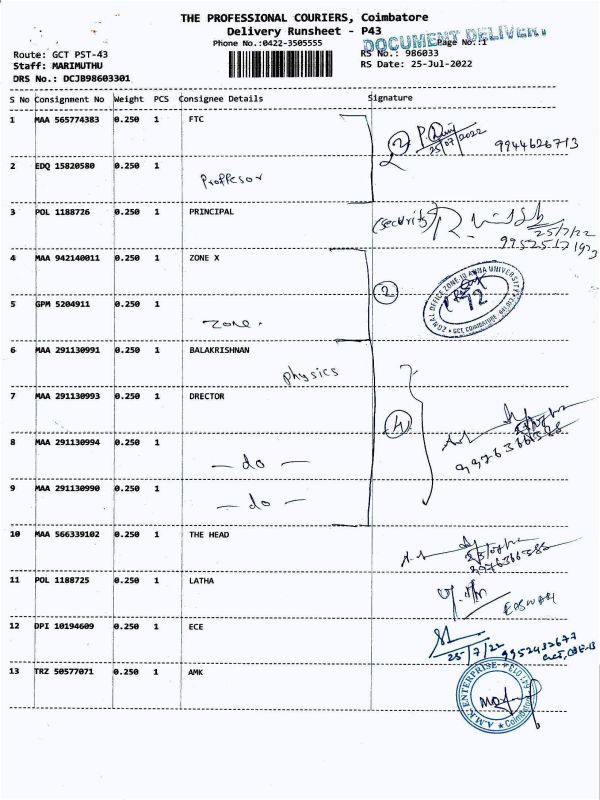 THE PROFESSIONAL COURIERS, Coimbatore
Delivery Runsheet - P43
DOCUMENT DELIVERY
Phone No.:0422-3505555 Page No.:1
Route: GCT PST-43 RS No.: 986033
Staff: MARIMUTHU RS Date: 25-Jul-2022
DRS No.: DCJB98603301
S No Consignment No Weight PCS Consignee Details Signature
1 MAA 565774383 0.250 1 FTC
2 25/07/2022 9944626713
2 EDQ 15820580 0.250 1
Proffesor
3 POL 1188726 0.250 1 PRINCIPAL
(security) 25/7/22
4 MAA 942140011 0.250 1 ZONE X
2
ZONAL OFFICE ZONE-10 ANNA UNIVERSITY
GCT, COIMBATORE
5 GPM 5204911 0.250 1
Zone.
6 MAA 291130991 0.250 1 BALAKRISHNAN
physics
7 MAA 291130993 0.250 1 DRECTOR
4
8 MAA 291130994 0.250 1
— do —
9 MAA 291130990 0.250 1
— do —
10 MAA 566339102 0.250 1 THE HEAD
11 POL 1188725 0.250 1 LATHA
12 DPI 10194609 0.250 1 ECE
25/7/22 9952432677
GCT, CBE-13
13 TRZ 50577071 0.250 1 AMK
A.M.K ENTERPRISE * Coimbatore - 641 013 *